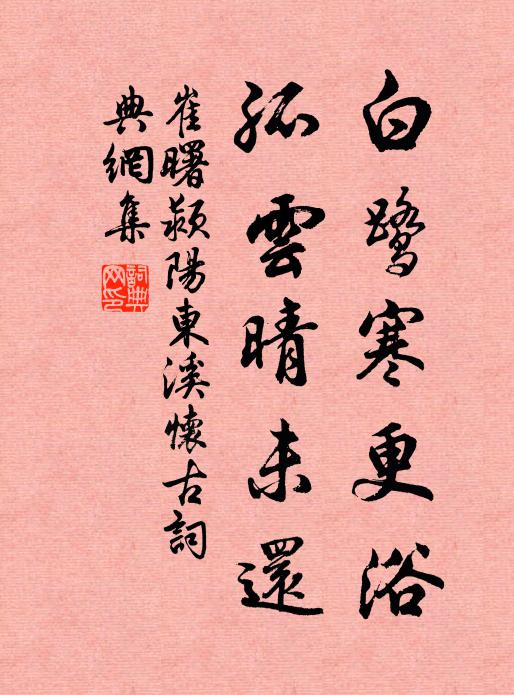 白鷺寒更浴
孤雲晴未還
崔曙潁陽東溪懷古詞
典網集
詞典
网印